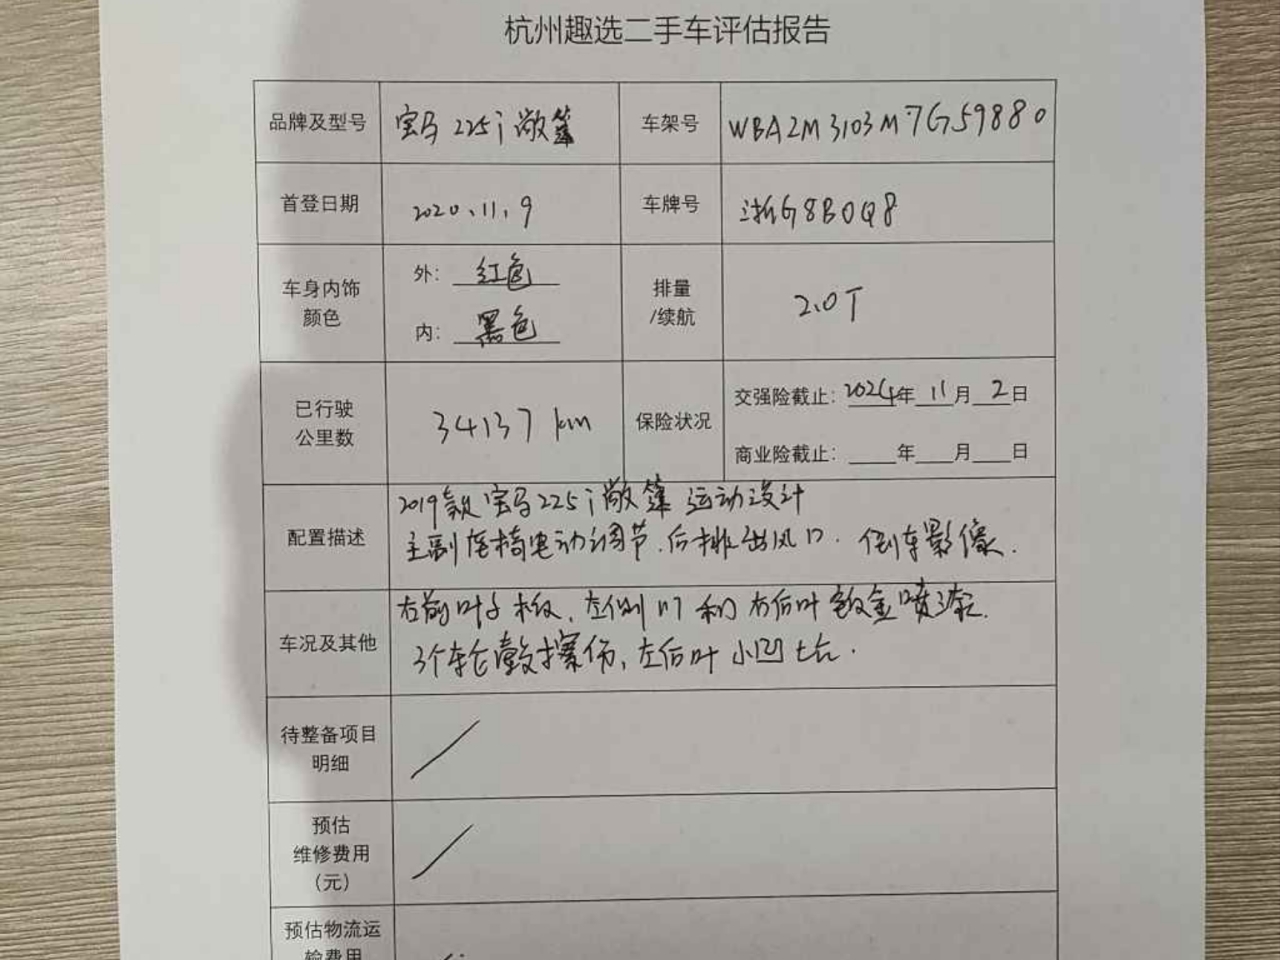 杭州趣选二手车评估报告
品牌及型号 宝马225i敞篷 车架号 WBA2M3103M7G59880
首登日期 2020.11.9 车牌号 浙G8B0Q8
车身内饰
颜色
外: 红色
内: 黑色
排量
/续航
2.0T
已行驶
公里数
34137km
保险状况
交强险截止: 2024年11月2日
商业险截止: ____年___月___日
配置描述
2019款宝马225i敞篷 运动设计
主副座椅电动调节.后排出风口.倒车影像.
车况及其他
右前叶子板、左侧门和右后叶钣金喷漆.
3个轮毂擦伤、左后叶小凹
待整备项目
明细
/
预估
维修费用
（元）
/
预估物流运
输费用